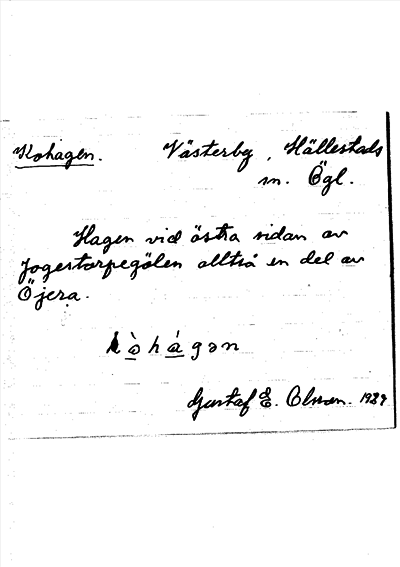 Kohagen. Västerby, Hällestads
m. Ögl.
Hagen vid östra sidan av
Jogestorpegölen alltså en del av
Öjera.
kòhágən
Gustaf E. Olsson. 1929